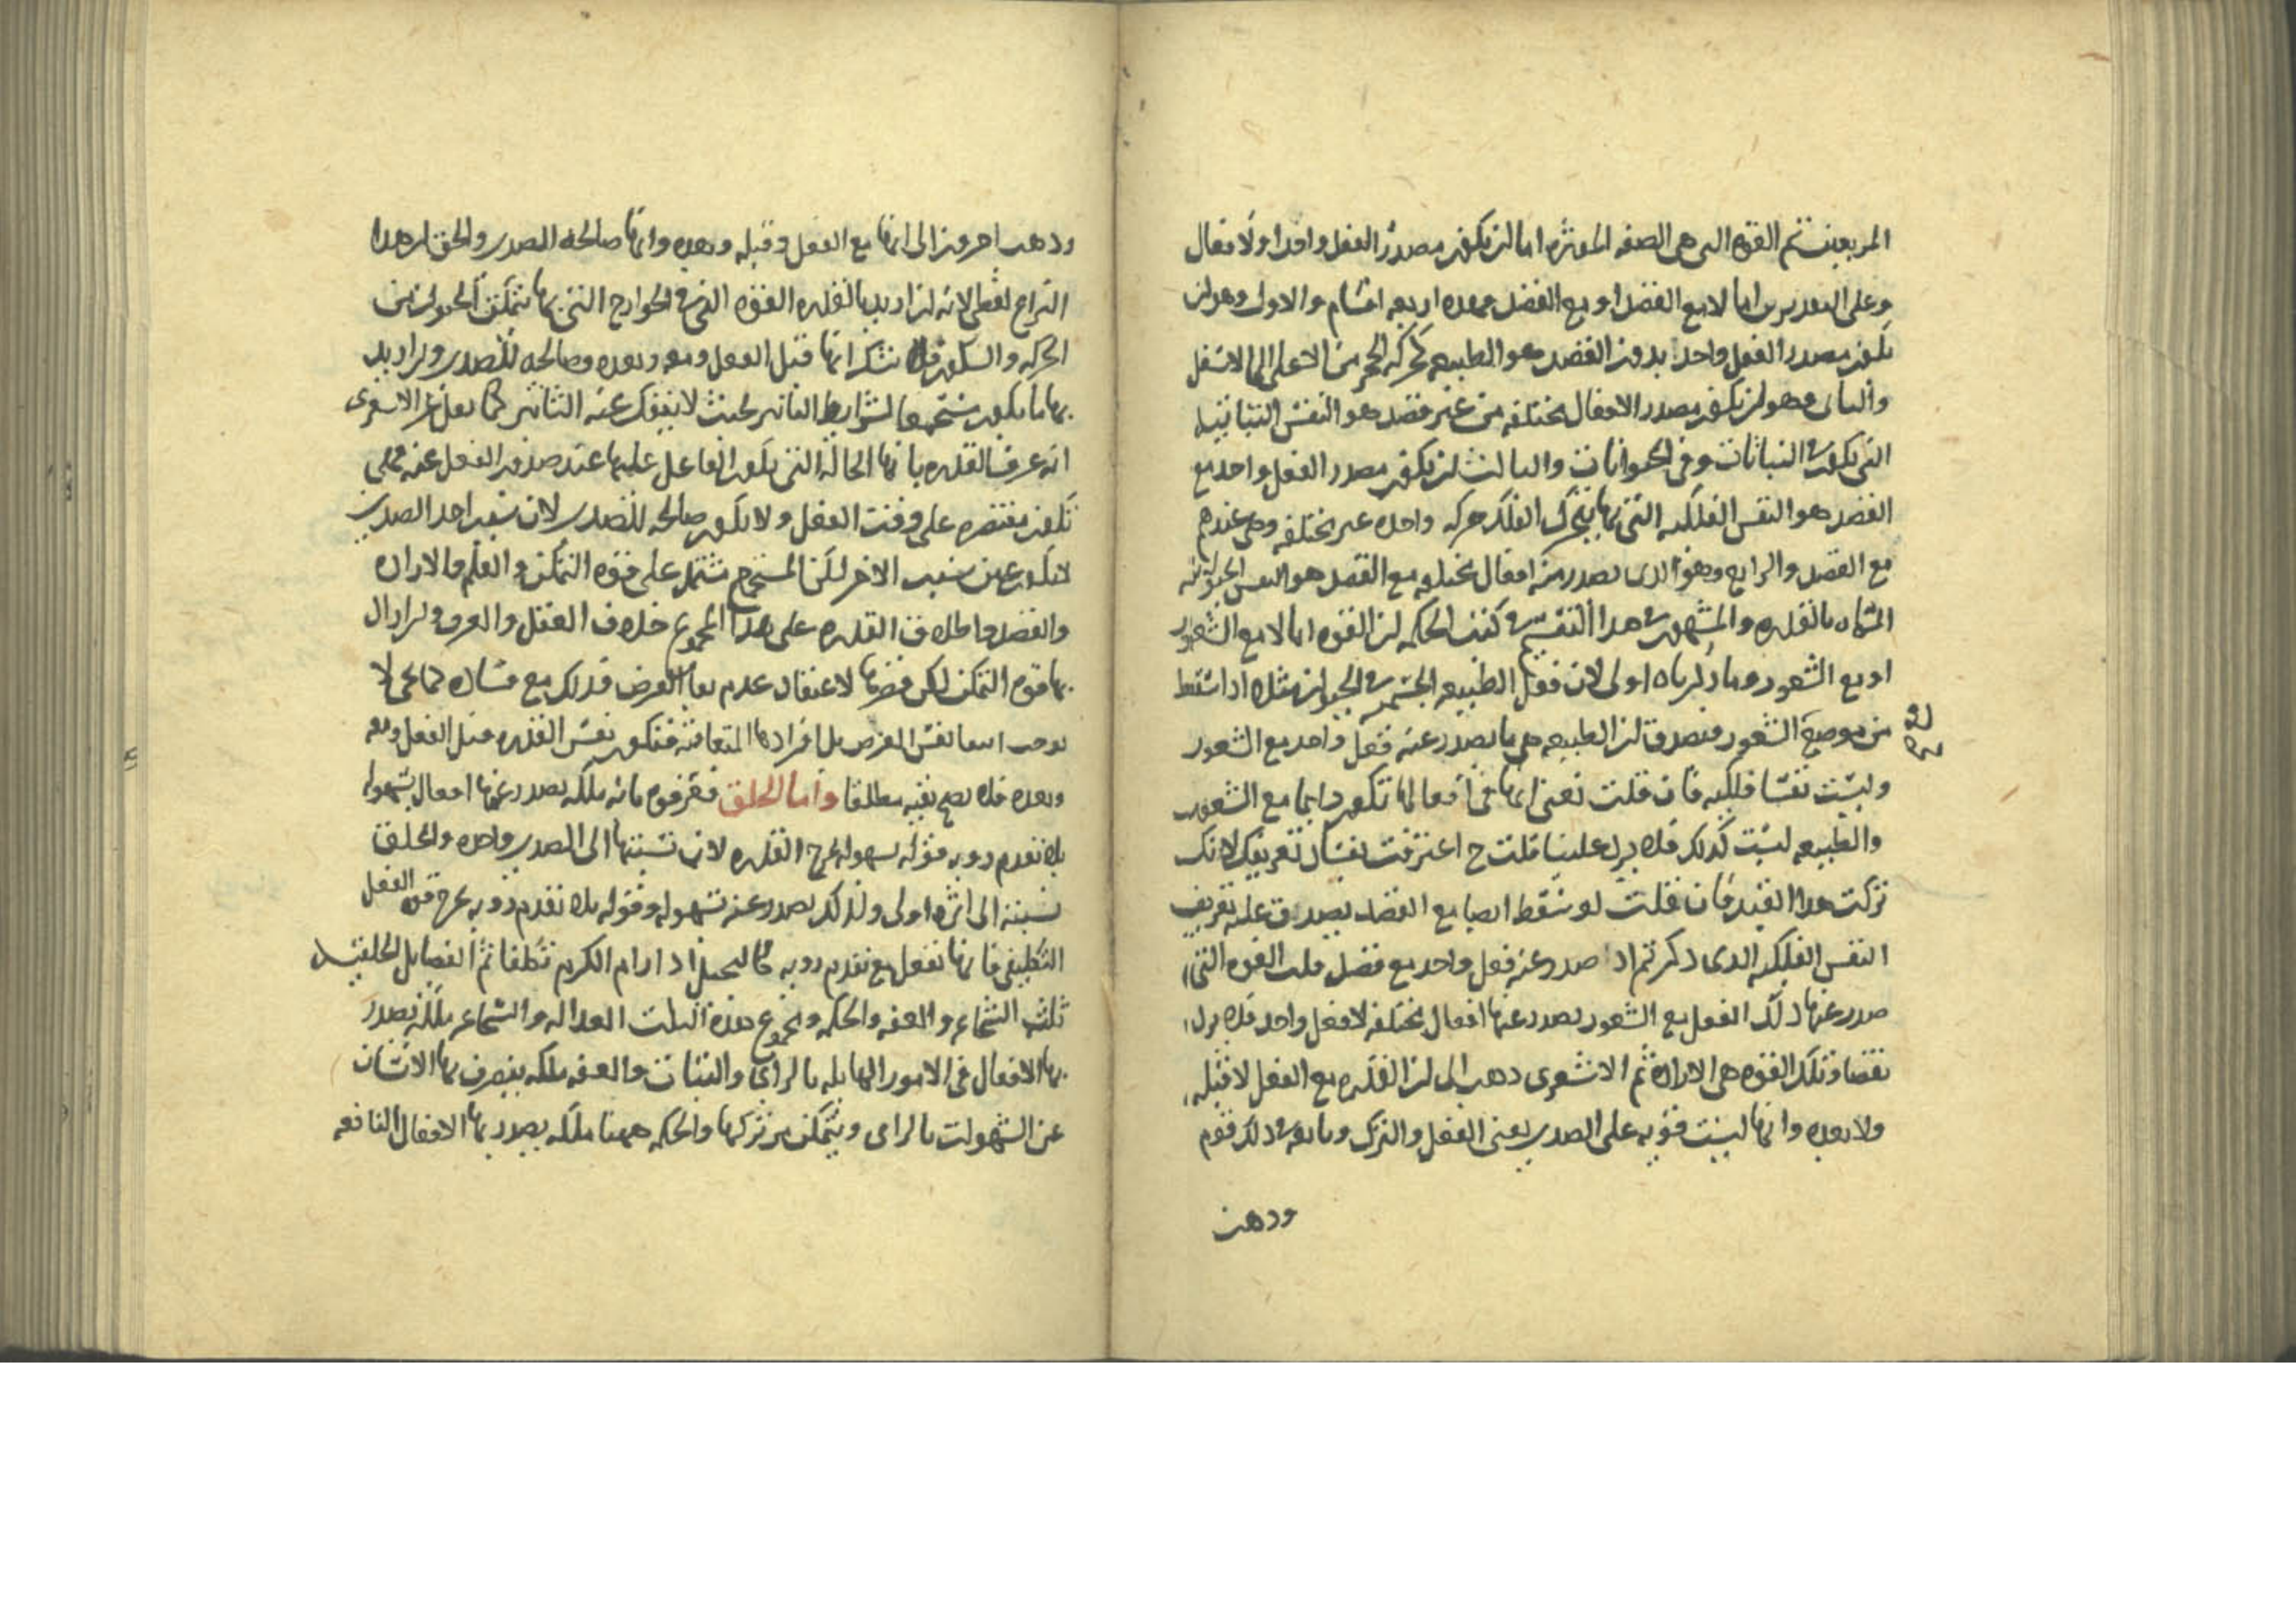 المربعين ثم القوه التى هى الصفه الموثره اما ان يكون مصدر الفعل واحد او لافعال
وعلى التقديرين اما لا مع القصد او مع القصد فهذه اربعه اقسام والاول وهو ان
يكون مصدر الفعل واحد بدون القصد هو الطبيعه كحركه الحجر من الاعلى الى الاسفل
والثانى وهو ان يكون مصدر الافعال مختلفه من غير قصد هو النفس النباتيه
التى يكون فى النباتات وفى الحيوانات والثالث ان يكون مصدر الفعل واحد مع
القصد هو النفس الفلكيه التى بها يتحرك الفلك حركه واحده غير مختلفه وهى عندهم
مع القصد والرابع وهو الذى يصدر منه افعال مختلفه مع القصد هو النفس الحيوانيه
المسماه بالقدره والمشهور فى هذا التقسيم فى كتب الحكمه ان القوه اما لا مع الشعور
او مع الشعور وما ذكرناه اولى لان فعل الطبيعه الجسم فى الحيوان مثلا اذا سقط
من موضع الشعور فيصدق ان الطبيعه هى ما يصدر عنه فعل واحد مع الشعور
وليست نفسا فلكيه فان قلت نعنى انها فى افعالها تكون دايما مع الشعور
والطبيعه ليست كذلك فلا يرد علينا قلت ح اعترفت بفساد تعريفك لانك
تركت هذا القيد فان قلت لو سقط ايضا مع القصد يصدق عليه تعريف
النفس الفلكيه الذى ذكر ثم اذا صدر عنه فعل واحد مع قصد قلت القوه التى
صدر عنها ذلك الفعل مع الشعور يصدر عنها افعال مختلفه لا فعل واحد فلا يرد
نقضا وتلك القوه هى الاراده ثم الاشعرى ذهب الى ان القدره مع الفعل لا قبله
ولا بعده وانها ليست قويه على الضدين يعنى الفعل والترك وتابعه فى ذلك قوم
وذهب
وذهب اخرون الى انها مع الفعل وقبله وبعده وانها صالحه للضدين والحق ان هذا
النزاع لفظى لانه ان اريد بالقدره القوه التى فى الجوارح التى بها يتمكن الحيوان من
الحركه والسكون فلا شك انها قبل الفعل ومعه وبعده وصالحه للضدين وان اريد
بها ما يكون مستجمعا لشرايط التاثير بحيث لا ينفك عنه التاثير كما نقل عن الاشعرى
انه عرف القدره بانها الحاله التى يكون الفاعل عليها عند صدور الفعل عنه فهى
تكون مقتصره على وقت الفعل ولا يكون صالحه للضدين لان سبب احد الضدين
لا يكون عين سبب الاخر لكن المستجمع مشتمل على قوه التمكن والعلم والاراده
والقصد واطلاق القدره على هذا المجموع خلاف العقل والعرف وان اراد
بها قوه التمكن لكن قصرها لاعتقاد عدم بقا العرض فذلك مع فساده كما يجى لا
يوجب انتفا نفس العرض بل افرادها المتعاقبه فيكون نفس القدره قبل الفعل ومعه
وبعده فلا يصح نفيه مطلقا واما الخلق فعرفوه بانه ملكه يصدر عنها افعال بسهوله
بلا تقدم رويه فقوله بسهوله يخرج القدره لان نسبتها الى الضدين واحده والخلق
نسبته الى اثره اولى ولذلك يصدر عنه بسهوله وقوله بلا تقدم رويه يخرج قوه الفعل
التكليفى فانها تفعل مع تقدم رويه كالبخيل اذا رام الكرم تكلفا ثم الفضايل الخلقيه
ثلث الشجاعه والعفه والحكمه ومجموع هذه الثلث العداله والشجاعه ملكه يصدر
بها الافعال فى الامور الهايله بالراى والثبات والعفه ملكه ينصرف بها الانسان
عن الشهوات بالراى ويتمكن من تركها والحكمه ههنا ملكه يصدر بها الافعال النافعه